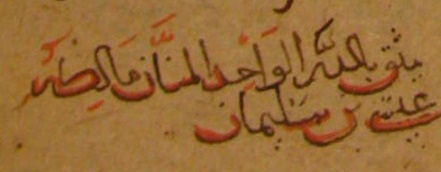 يثق بالله الواحد المنان مالكه
علي بن سليمان